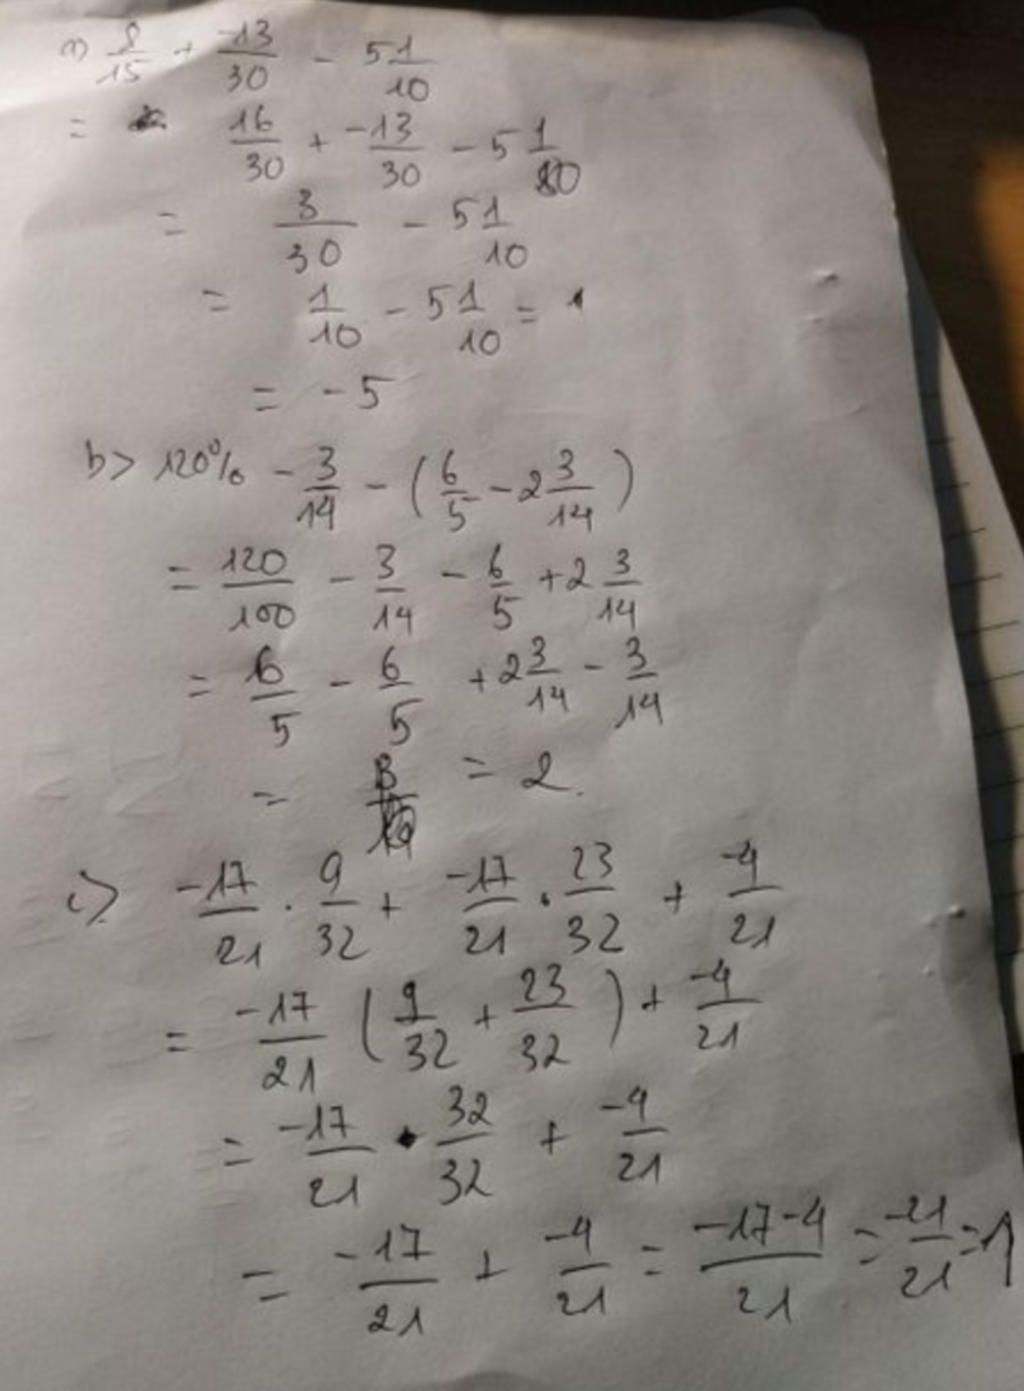 a) 8/15 + -13/30 - 5 1/10
= 16/30 + -13/30 - 5 1/10
= 3/30 - 5 1/10
= 1/10 - 5 1/10 =
= -5
b> 120% - 3/14 - (6/5 - 2 3/14)
= 120/100 - 3/14 - 6/5 + 2 3/14
= 6/5 - 6/5 + 2 3/14 - 3/14
= = 2.
c> -17/21 . 9/32 + -17/21 . 23/32 + -4/21
= -17/21 (9/32 + 23/32) + -4/21
= -17/21 . 32/32 + -4/21
= -17/21 + -4/21 = -17-4/21 = -21/21 = 1